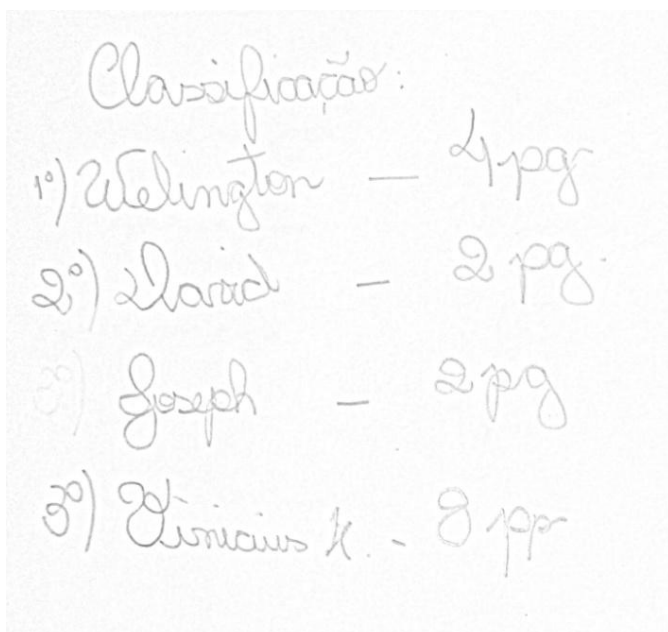 Classificação:
1º) Welington — 4 pg
2º) David — 2 pg.
Joseph — 2 pg
3º) Vinicius K. - 8 pp